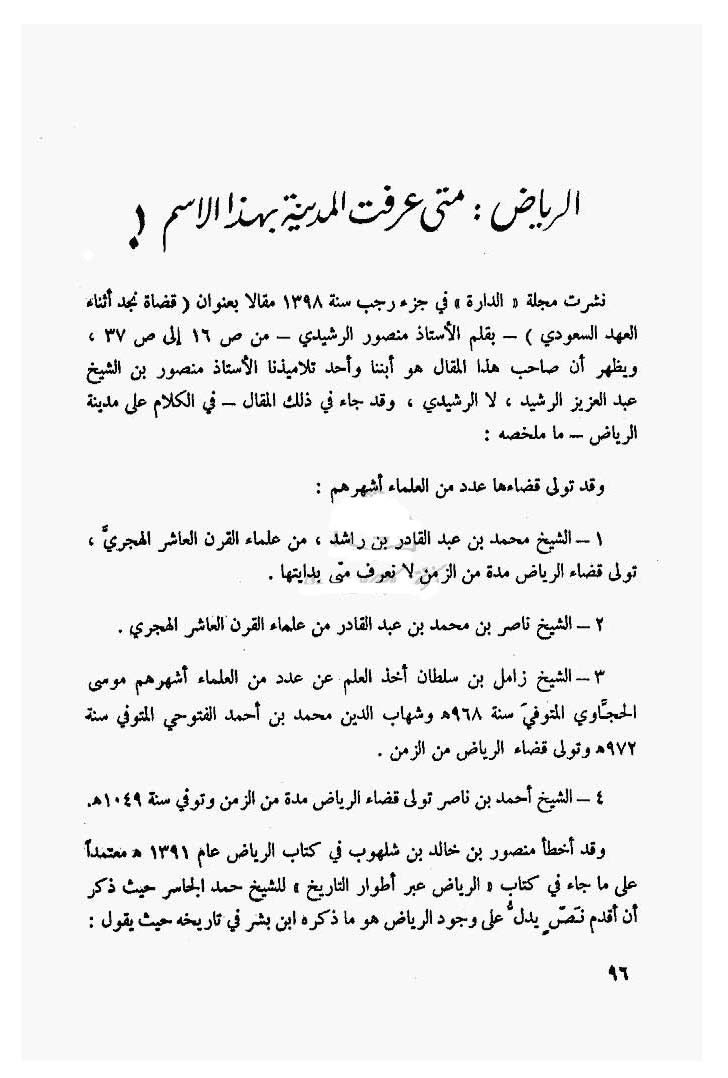 الرياض : متى عرفت المدينة بهذا الاسم ؟
نشرت مجلة « الدارة » في جزء رجب سنة ١٣٩٨ مقالا بعنوان ( قضاة نجد أثناء
العهد السعودي ) – بقلم الأستاذ منصور الرشيدي – من ص ١٦ إلى ص ٣٧ ،
ويظهر أن صاحب هذا المقال هو أبننا وأحد تلاميذنا الأستاذ منصور بن الشيخ
عبد العزيز الرشيد ، لا الرشيدي ، وقد جاء في ذلك المقال – في الكلام على مدينة
الرياض – ما ملخصه :
وقد تولى قضاءها عدد من العلماء أشهرهم :
١ – الشيخ محمد بن عبد القادر بن راشد ، من علماء القرن العاشر الهجريَّ ،
تولى قضاء الرياض مدة من الزمن لا نعرف متى بدايتها .
٢ – الشيخ ناصر بن محمد بن عبد القادر من علماء القرن العاشر الهجري .
٣ – الشيخ زامل بن سلطان أخذ العلم عن عدد من العلماء أشهرهم موسى
الحجَّاوي المتوفيَ سنة ٩٦٨هـ وشهاب الدين محمد بن أحمد الفتوحي المتوفي سنة
٩٧٢هـ وتولى قضاء الرياض من الزمن .
٤ – الشيخ أحمد بن ناصر تولى قضاء الرياض مدة من الزمن وتوفي سنة ١٠٤٩هـ.
وقد أخطأ منصور بن خالد بن شلهوب في كتاب الرياض عام ١٣٩١ هـ معتمداً
على ما جاء في كتاب « الرياض عبر أطوار التاريخ » للشيخ حمد الجاسر حيث ذكر
أن أقدم نَصّ يدلُّ على وجود الرياض هو ما ذكره ابن بشر في تاريخه حيث يقول :
٩٦